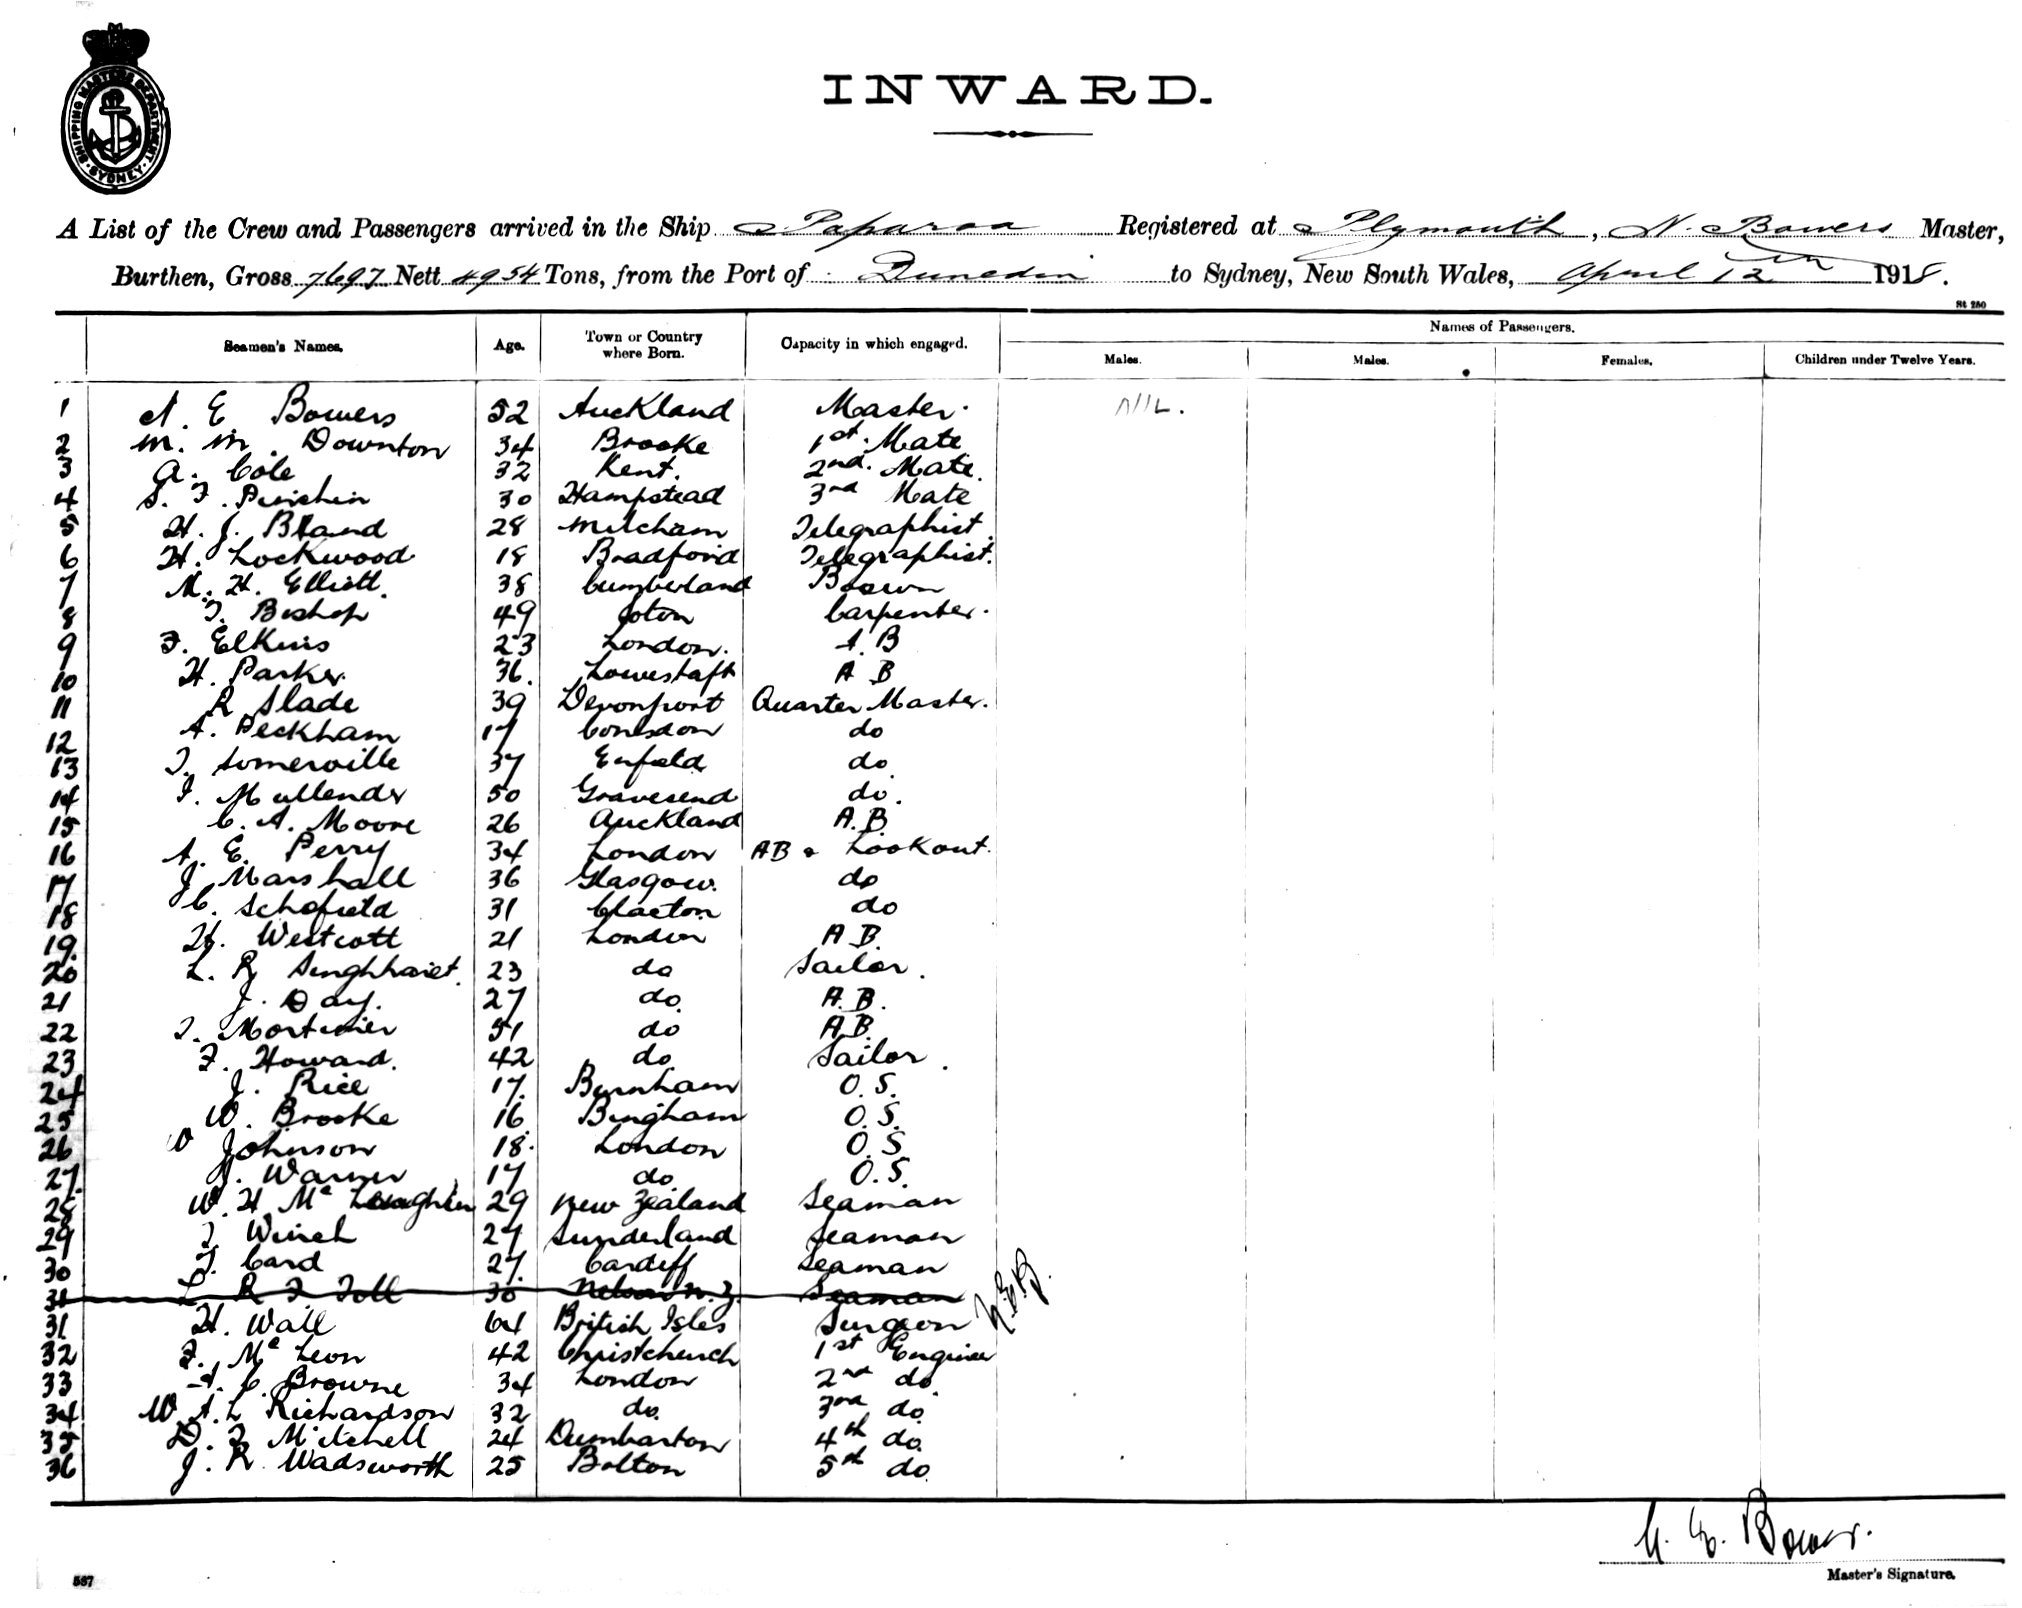 SHIPPING MASTERS DEPARTMENT SYDNEY
INWARD.
A List of the Crew and Passengers arrived in the Ship Paparoa Registered at Plymouth, N. Bowers Master,
Burthen, Gross 7697 Nett 4954 Tons, from the Port of Dunedin to Sydney, New South Wales, April 12th 1918.
St 250
Seamen's Names. Age. Town or Country where Born. Capacity in which engaged. Names of Passengers.
Males. Males. Females. Children under Twelve Years.
1 N. E Bowers 52 Auckland Master. NIL.
2 M. M. Downton 34 Brooke 1st Mate
3 A. Cole 32 Kent. 2nd. Mate.
4 S. F. Punchin 30 Hampstead 3rd Mate
5 H. J. Bland 28 Mitcham Telegraphist.
6 H. Lockwood 18 Bradford Telegraphist.
7 M. H. Elliott. 38 Cumberland Bosun
8 T. Bishop 49 Carpenter.
9 F. Elkins 23 London. A. B
10 H. Parker. 36. Lowestoft A B
11 R Slade 39 Devonport Quarter Master.
12 A. Peckham 17 do
13 T. Somerville 37 Enfield do
14 J. Mullender 50 Gravesend do.
15 C. A. Moore 26 Auckland A.B.
16 A. E. Perry 34 London AB & Lookout.
17 J. Marshall 36 Glasgow. do
18 C. Schofield 31 Clacton do
19. H. Westcott 21 London A B.
20 L. R. 23 do Sailor.
21 J. Day. 27 do. A. B.
22 T. Mortimer 51 do A B.
23 F. Howard. 42 do. Sailor.
24 J. Rice 17. Burnham O. S.
25 W. Brooke 16 Bingham O. S.
26 W Johnson 18. London O. S
27. J. Warner 17 do. O. S.
28 W. H Mc Laughlin 29 New Zealand Seaman
29 T Winch 27 Sunderland Seaman
30 T. Card 27. Cardiff Seaman
31 L R F Toll 30 Nelson N. Z. Seaman N.E.B.
31 H. Wall 64 British Isles Surgeon
32 F. Mc Leon 42 Christchurch 1st Engineer
33 A. C. Browne 34 London 2nd do
34 W A. L Richardson 32 do. 3rd do
35 D. T. Mitchell 24 Dumbarton 4th do.
36 J. R. Wadsworth 25 Bolton 5th do.
N. E. Bowers.
Master's Signature.
567